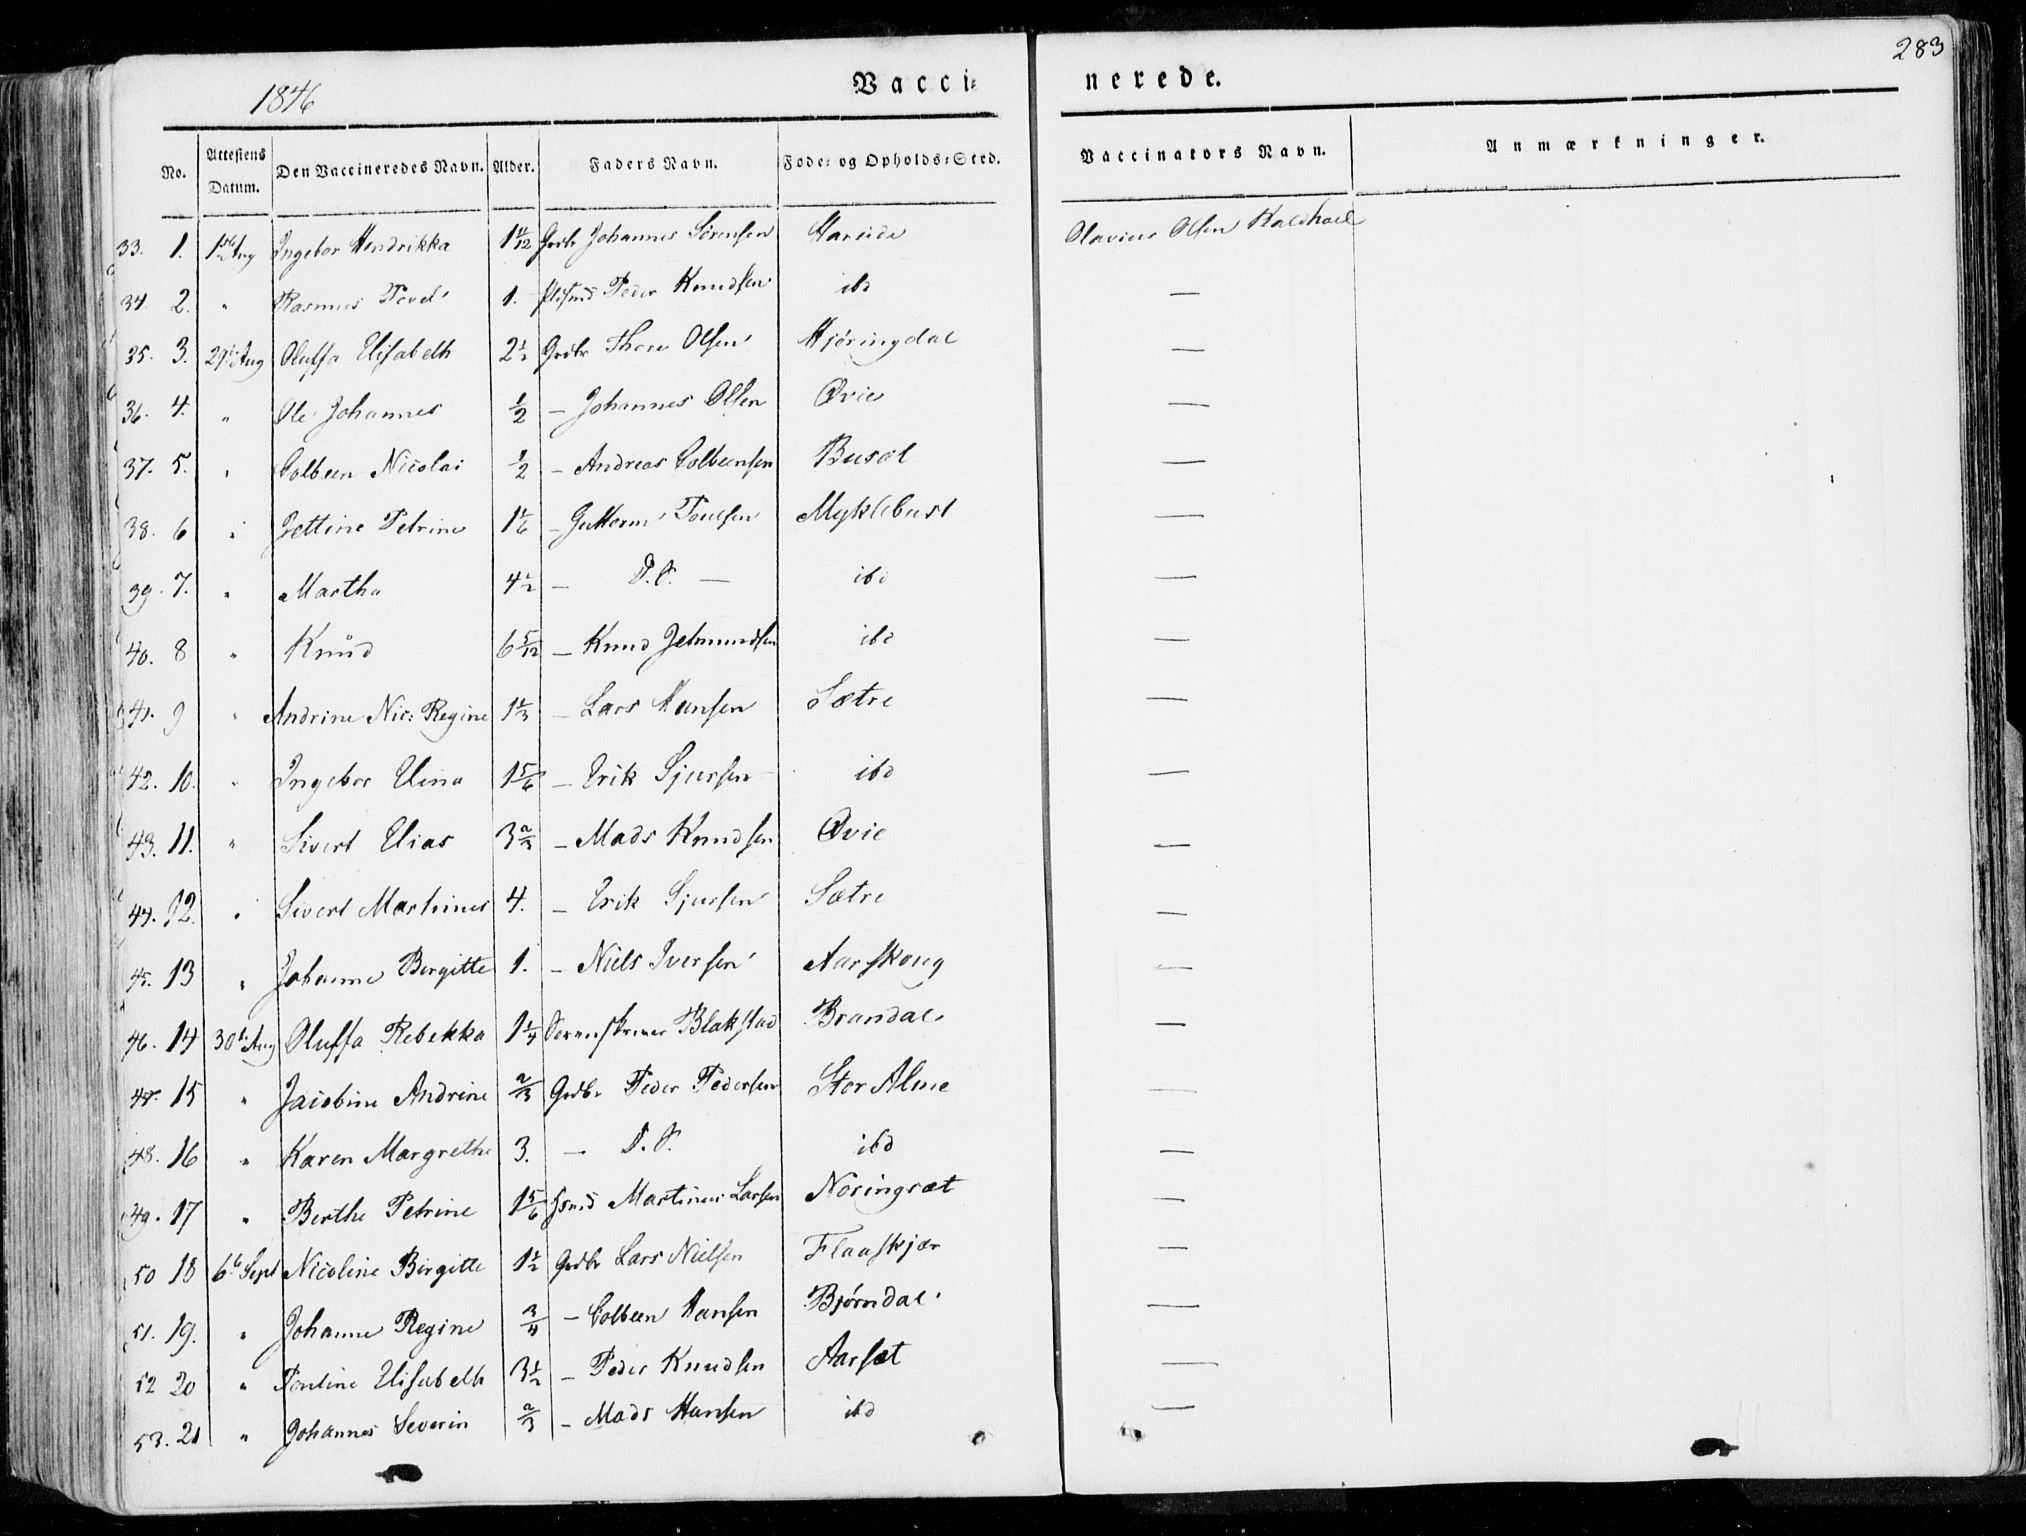 283
1846
Vacci= nerede.
No. Attestens Datum. Den Vaccineredes Navn. Alder. Faders Navn. Føde= og Opholds=Sted. Vaccinators Navn. Anmærkninger.
33. 1. 1ste Aug Ingebor Hendrikka 1 4/12 Grdbr Johannes Sørensen Hareide Olavius Olsen Kaldhoel
34. 2. " Rasmus Peder 1. Peder Knudsen ibd —
35. 3. 29de Aug Oluffa Elisabeth 2 1/2 Grdbr Thore Olsen Hjøringdal —
36. 4. " Ole Johannes 1/2 — Johannes Olsen Øvie —
37. 5. " Colbeen Nicolai 1/2 — Andreas Colbeensen Busæt —
38. 6 " Jettine Petrine 1 1/6 — Guttorm Poulsen Myklebust —
39. 7. " Martha 4 1/2 — D.S. — ibd —
40. 8 " Knud 6 5/12 — Knud Jetmundsen ibd —
41. 9 " Andrine Nic: Regine 1 1/3 — Lars Hansen Sætre —
42. 10. " Ingebor Elina 1 5/6 — Erik Sjursen ibd —
43. 11. " Sivert Elias 3 2/3 — Mads Knudsen Øvie —
44. 12. " Sivert Martinus 4. — Erik Sjursen Sætre —
45. 13 " Johanne Birgitte 1. — Niels Iversen Aarskoug —
46. 14 30te Aug Oluffa Rebekka 1 1/4 Sorenskriver Blakstad Brandal —
47. 15 " Jacobine Andrine 2/3 Grdbr Peder Pedersen Stor Alme —
48. 16 " Karen Margrethe 3. — D.S. ibd —
49. 17 " Berthe Petrine 1 5/6 Hsmd Martinus Larsen Noringsæt —
50 18 6te Sept Nicoline Birgitte 1 1/2 Grdbr Lars Nielsen Flaaskjær —
51. 19. " Johanne Regine 3/4 — Colbeen Hansen Bjørndal —
52 20 " Pauline Elisabeth 3 1/2 — Peder Knudsen Aarsæt —
53. 21 " Johannes Severin 2/3 — Mads Hansen ibd —